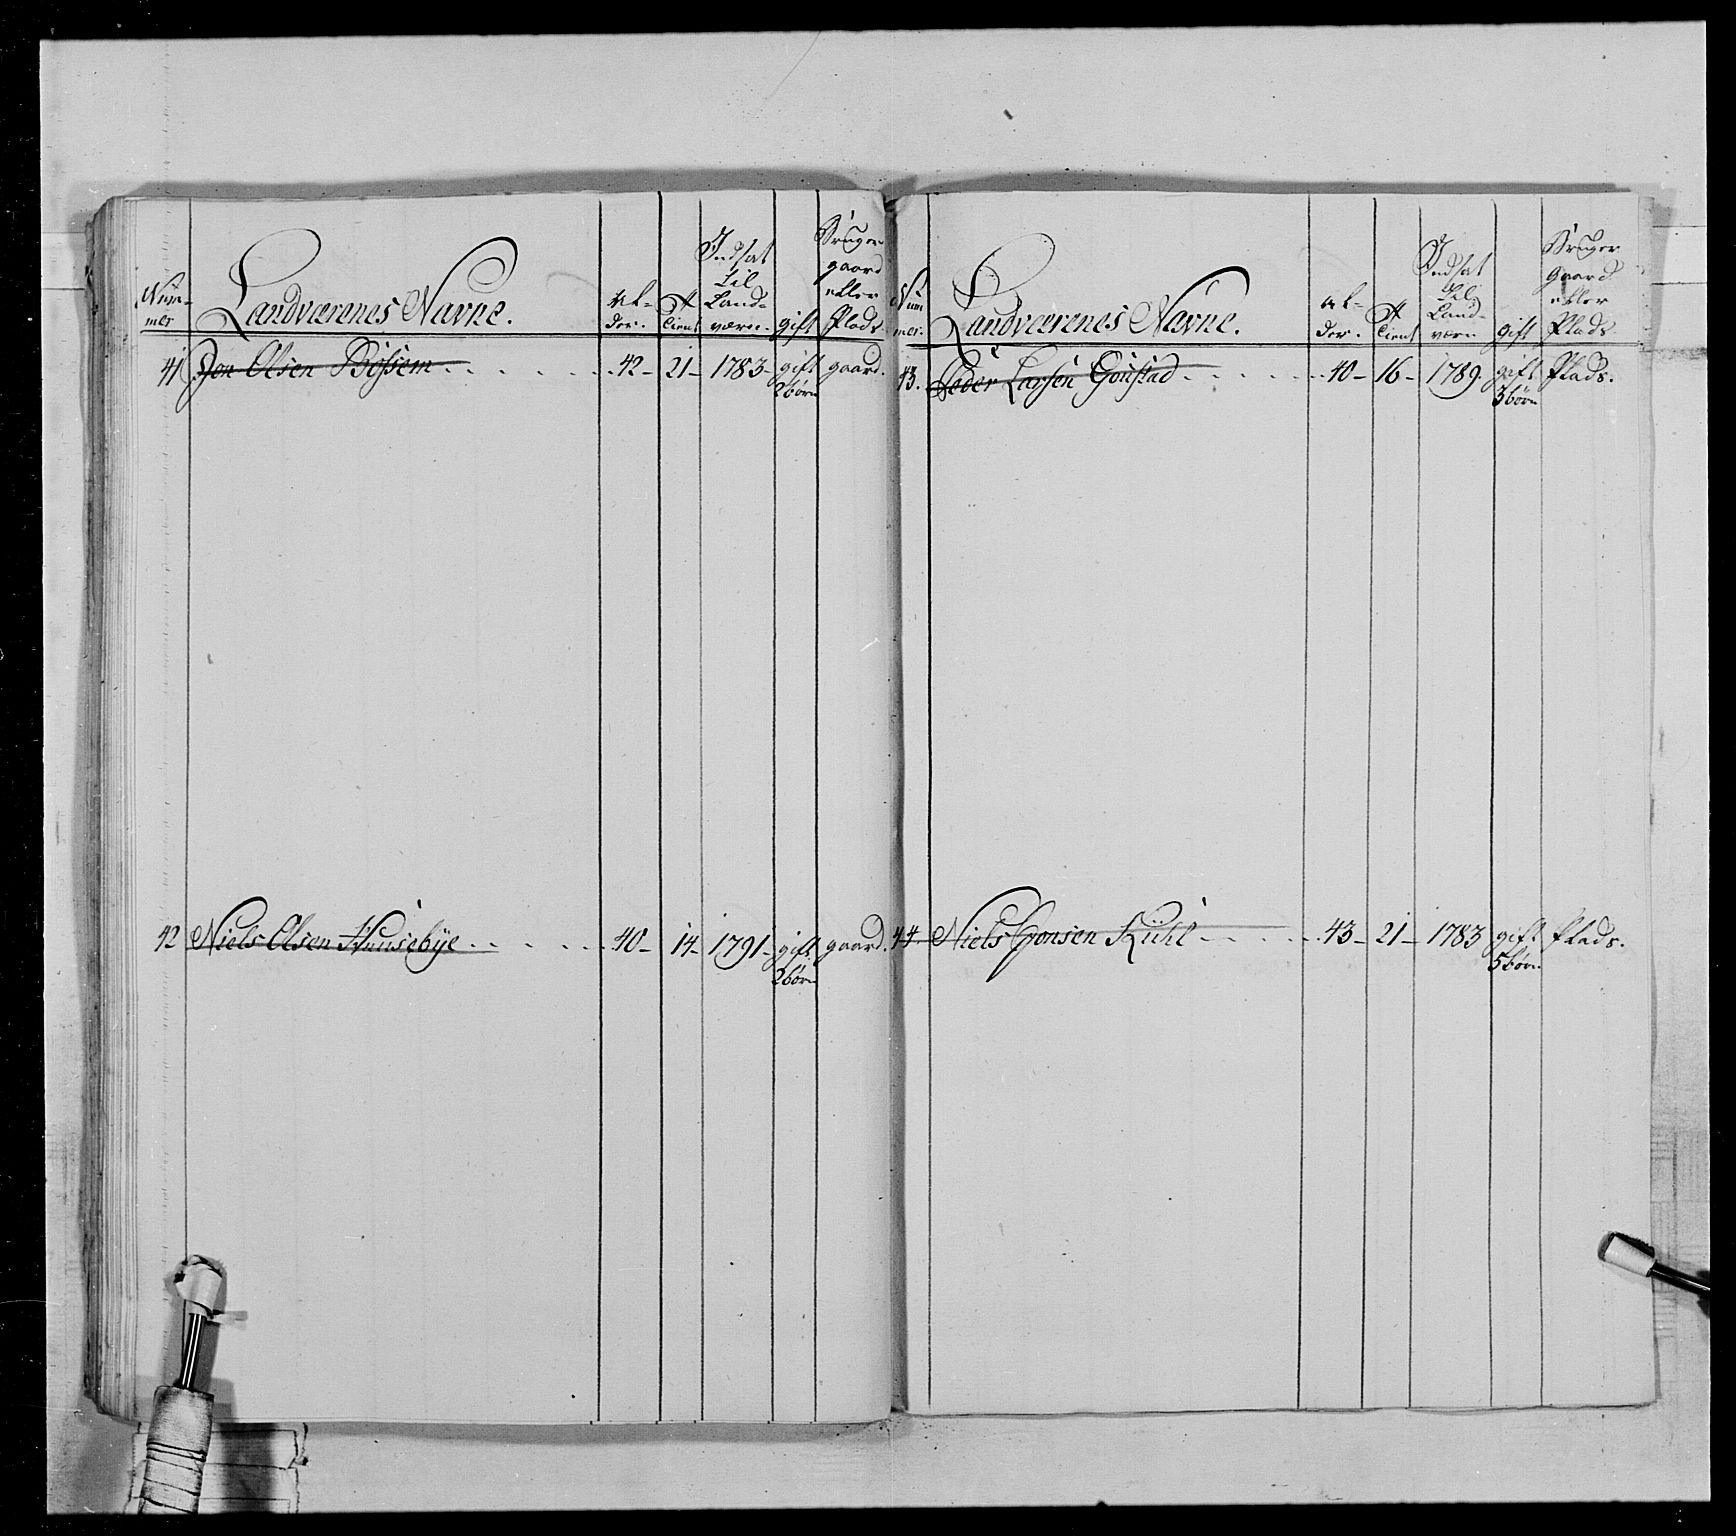 Num-
mer
Landværenes Navne.
Al-
der.
Tient
Indsat
til
Land-
værn.
gift
Bruger
gaard
eller
Plads.
41 Jon Olsen Bössem 42 - 21 - 1783 - gift gaard.
2 börn
42 Niels Olsen Huusebÿe 40 - 14 - 1791 - gift gaard.
2 börn
Num
mer.
Landværenes Navne.
Al-
der.
Tient
Indsat
til
Land-
værn
gift
Bruger
Gaard
eller
Plads.
43. Peder Larsen Gonstad 40 - 16 - 1789. gift Plads.
3 börn
44. Niels Jonsen Kühl 43 - 21 - 1783 gift Plads.
5 börn